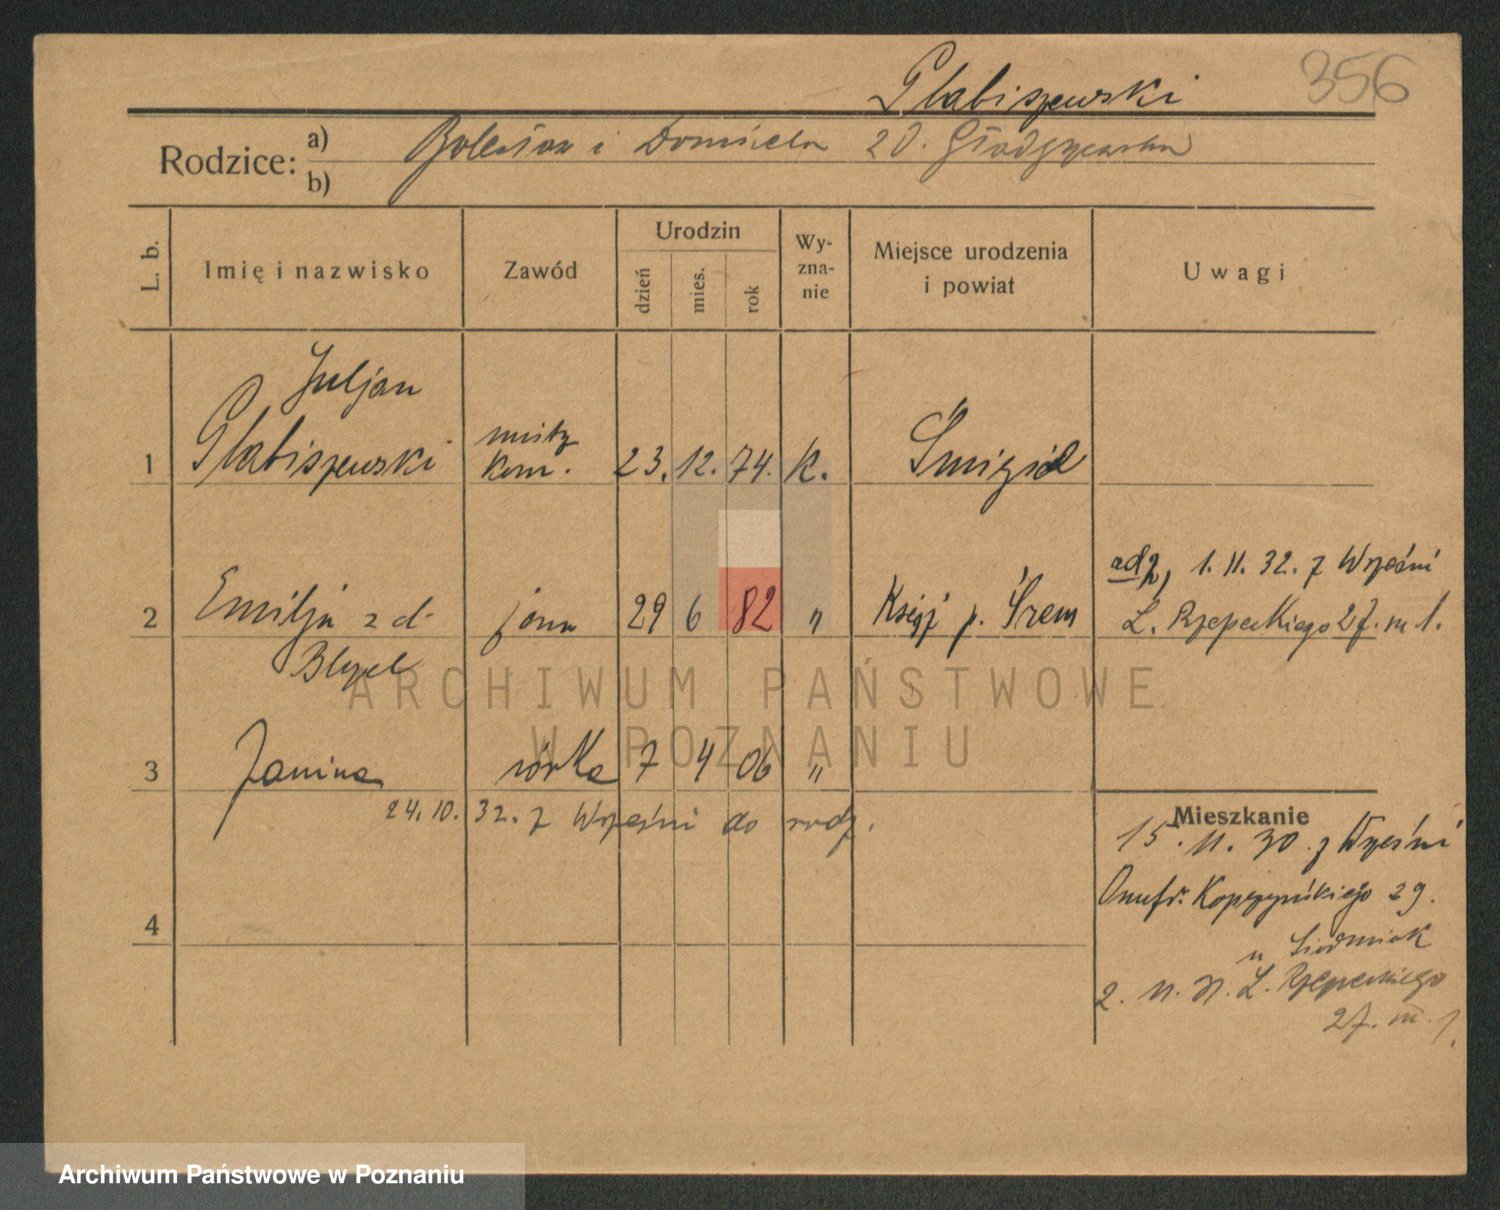 Glabiszewski 356
Rodzice: a) Bolesław i Domicela z D. Gładyszewska
b)
L. b.
Imię i nazwisko
Zawód
Urodzin
dzień
mies.
rok
Wy-
zna-
nie
Miejsce urodzenia
i powiat
Uwagi
Juljan
1 Glabiszewski mistrz kom. 23. 12. 74. K. Śmigiel
2 Emilja z d. żona 29 6 82 " Książ p. Śrem
ad 2, 1. 11. 32. z Wrześni
L. Rzepeckiego 27. m 1.
3 Janina córka 7 4 06 "
24. 10. 32. z Wrześni do rodz.
4
Mieszkanie
15. 11. 30. z Wrześni
Onufr. Kopczyńskiego 29.
u Siodmiak
2. 11. 31. L. Rzepeckiego
27. m. 1.
ARCHIWUM PAŃSTWOWE
W POZNANIU
Archiwum Państwowe w Poznaniu